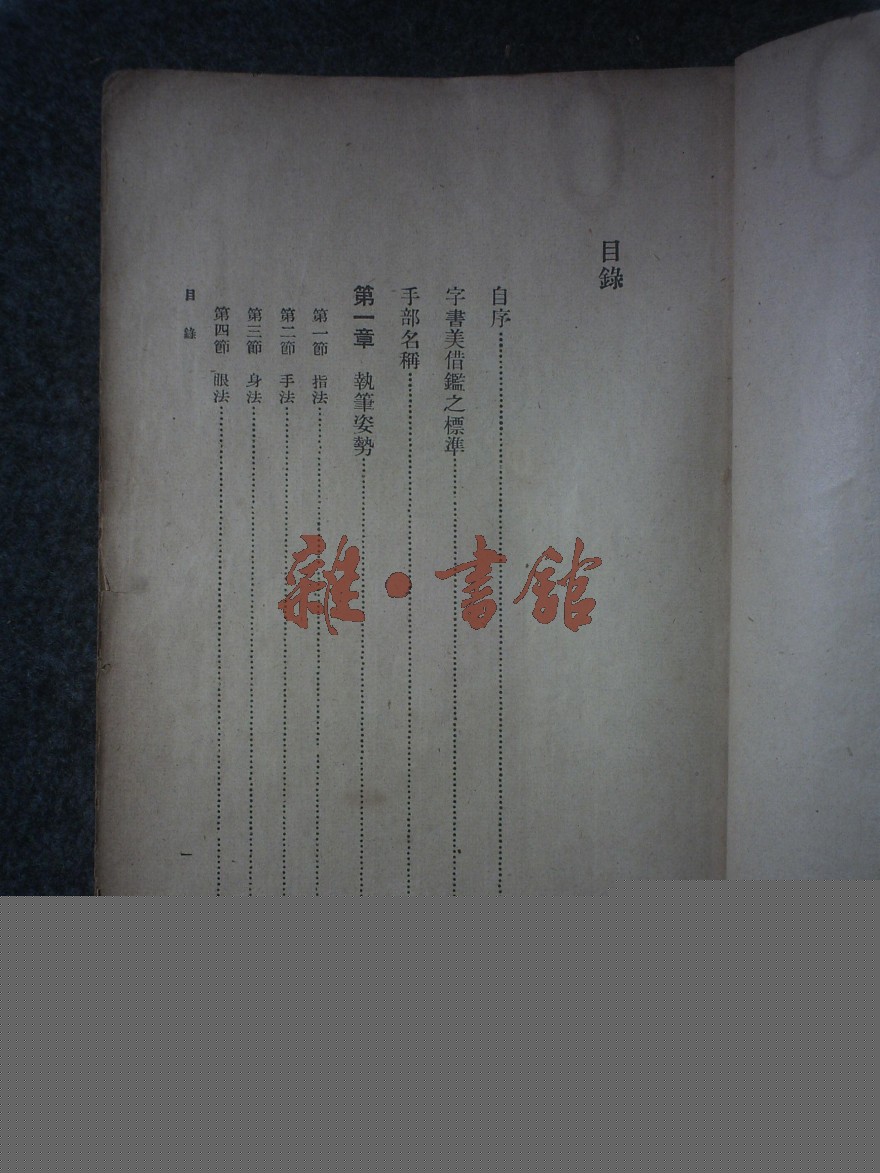 目錄
自序
字書美借鑑之標準
手部名稱
第一章 執筆姿勢
第一節 指法
第二節 手法
第三節 身法
第四節 眼法
目錄
一
雜·書館